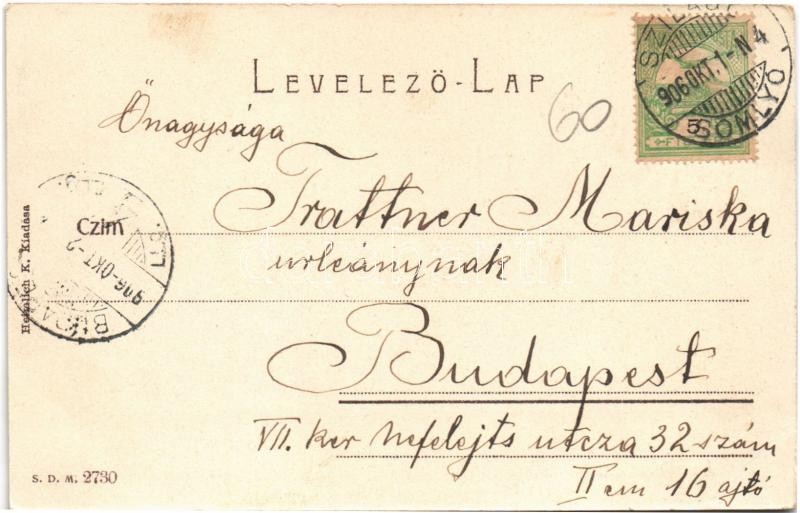 LEVELEZŐ-LAP
60
SZILÁGY
906 OKT. 1-N 4
SOMLYÓ
5
Őnagysága
Trattner Mariska
urleánynak
Budapest
VII. ker Nefelejts utcza 32 szám
II em 16 ajtó
Czim
906-OKT-2
BUDAPES
K. Kiadása
S. D. M. 2730